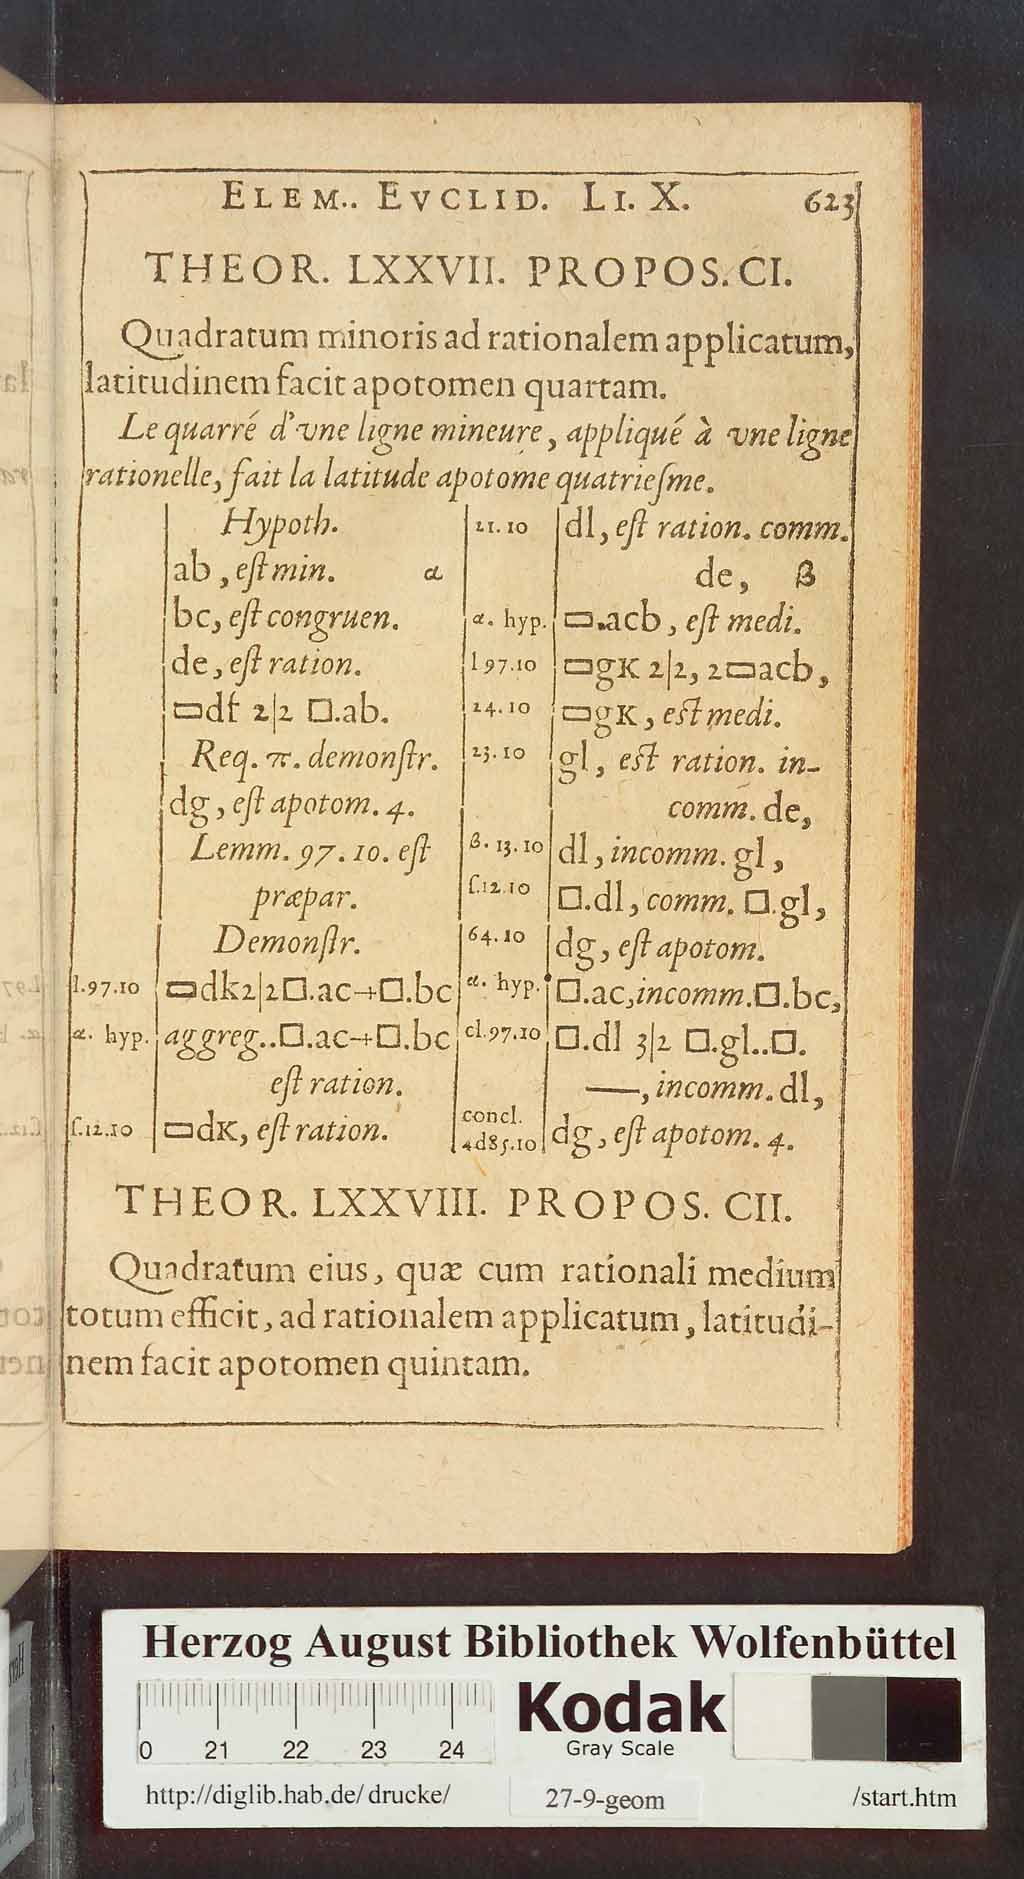 ELEM.. EVCLID. LI. X. 623
THEOR. LXXVII. PROPOS. CI.
Quadratum minoris ad rationalem applicatum,
latitudinem facit apotomen quartam.
Le quarré d'vne ligne mineure, appliqué à vne ligne
rationelle, fait la latitude apotome quatriesme.
Hypoth.
ab, est min. α
bc, est congruen.
de, est ration.
▭df 2|2 □.ab.
Req. π. demonstr.
dg, est apotom. 4.
Lemm. 97. 10. est
præpar.
Demonstr.
l.97.10 ▭dk2|2□.ac+□.bc
α. hyp. aggreg..□.ac+□.bc
est ration.
s.12.10 ▭dK, est ration.
21.10 dl, est ration. comm.
de, β
α. hyp. ▭.acb, est medi.
l97.10 ▭gK 2|2, 2▭acb,
24.10 ▭gK, est medi.
23.10 gl, est ration. in-
comm. de,
β. 13.10 dl, incomm. gl,
s.12.10 □.dl, comm. □.gl,
64.10 dg, est apotom.
α. hyp. □.ac, incomm.□.bc,
cl.97.10 □.dl 3|2 □.gl..□.
—, incomm. dl,
concl.
4d85.10 dg, est apotom. 4.
THEOR. LXXVIII. PROPOS. CII.
Quadratum eius, quæ cum rationali medium
totum efficit, ad rationalem applicatum, latitudi-
nem facit apotomen quintam.
Herzog August Bibliothek Wolfenbüttel
0 21 22 23 24
Kodak
Gray Scale
http://diglib.hab.de/drucke/ 27-9-geom /start.htm